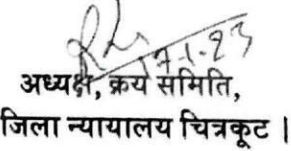 17-1-23
अध्यक्ष, क्रय समिति,
जिला न्यायालय चित्रकूट |